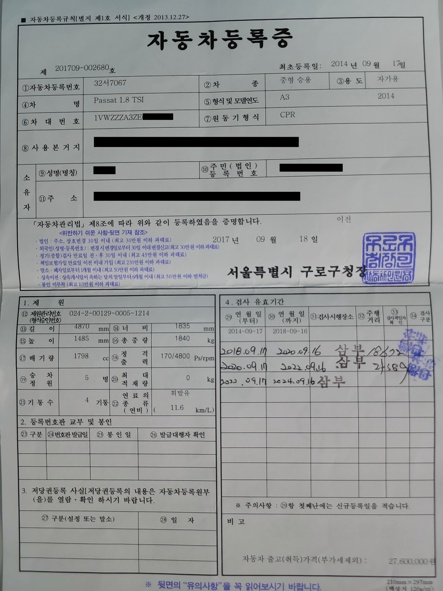 ■ 자동차등록규칙[별지 제1호 서식] <개정 2013.12.27>
자동차등록증
제 201709-002680호
최초등록일: 2014 년 09 월 17일
①자동차등록번호 32서7067 ②차 종 중형 승용 ③용도 자가용
④차 명 Passat 1.8 TSI ⑤형식 및 모델연도 A3 2014
⑥차 대 번 호 1VWZZZA3ZE ⑦원동기형식 CPR
⑧사용본거지
소유자 ⑨성명(명칭) ⑩주민(법인)등록번호
⑪주 소
「자동차관리법」 제8조에 따라 위와 같이 등록하였음을 증명합니다.
이전
<위반하기 쉬운 사항-뒷면 기재 참조>
2017 년 09 월 18 일
서울특별시 구로구청장
1. 제 원
024-2-00129-0005-1214
길 이 4870 mm 너 비 1835 mm
높 이 1485 mm 총 중 량 1840 kg
배 기 량 1798 cc 정격출력 170/4800 Ps/rpm
승차정원 5 명 최대적재량 0 kg
기 통 수 4 기통 연료의 종류 (연비) 휘발유 11.6 km/L)
2. 등록번호판 교부 및 봉인
구분 번호판 발급일 봉 인 일 발급대행자 확인
3. 저당권등록 사실[저당권등록의 내용은 자동차등록원부(을)를 열람ㆍ확인 하시기 바랍니다.
구분(설정 또는 말소) 일 자
4. 검사 유효기간
연 월 일 (부터) 연 월 일 (까지) 검사시행장소 주행거리 검사구분
2014-09-17 2018-09-16
2018.09.17 2020.09.16 삼부
2020.09.17 2022.09.16 삼부
2022.09.17 2024.09.16 삼부
※ 주의사항 : 항 첫째란에는 신규등록일을 적습니다.
비 고
자동차 출고(취득)가격(부가세제외) : 27,600,000원
※ 뒷면의 "유의사항"을 꼭 읽어보시기 바랍니다.
210mm×297mm